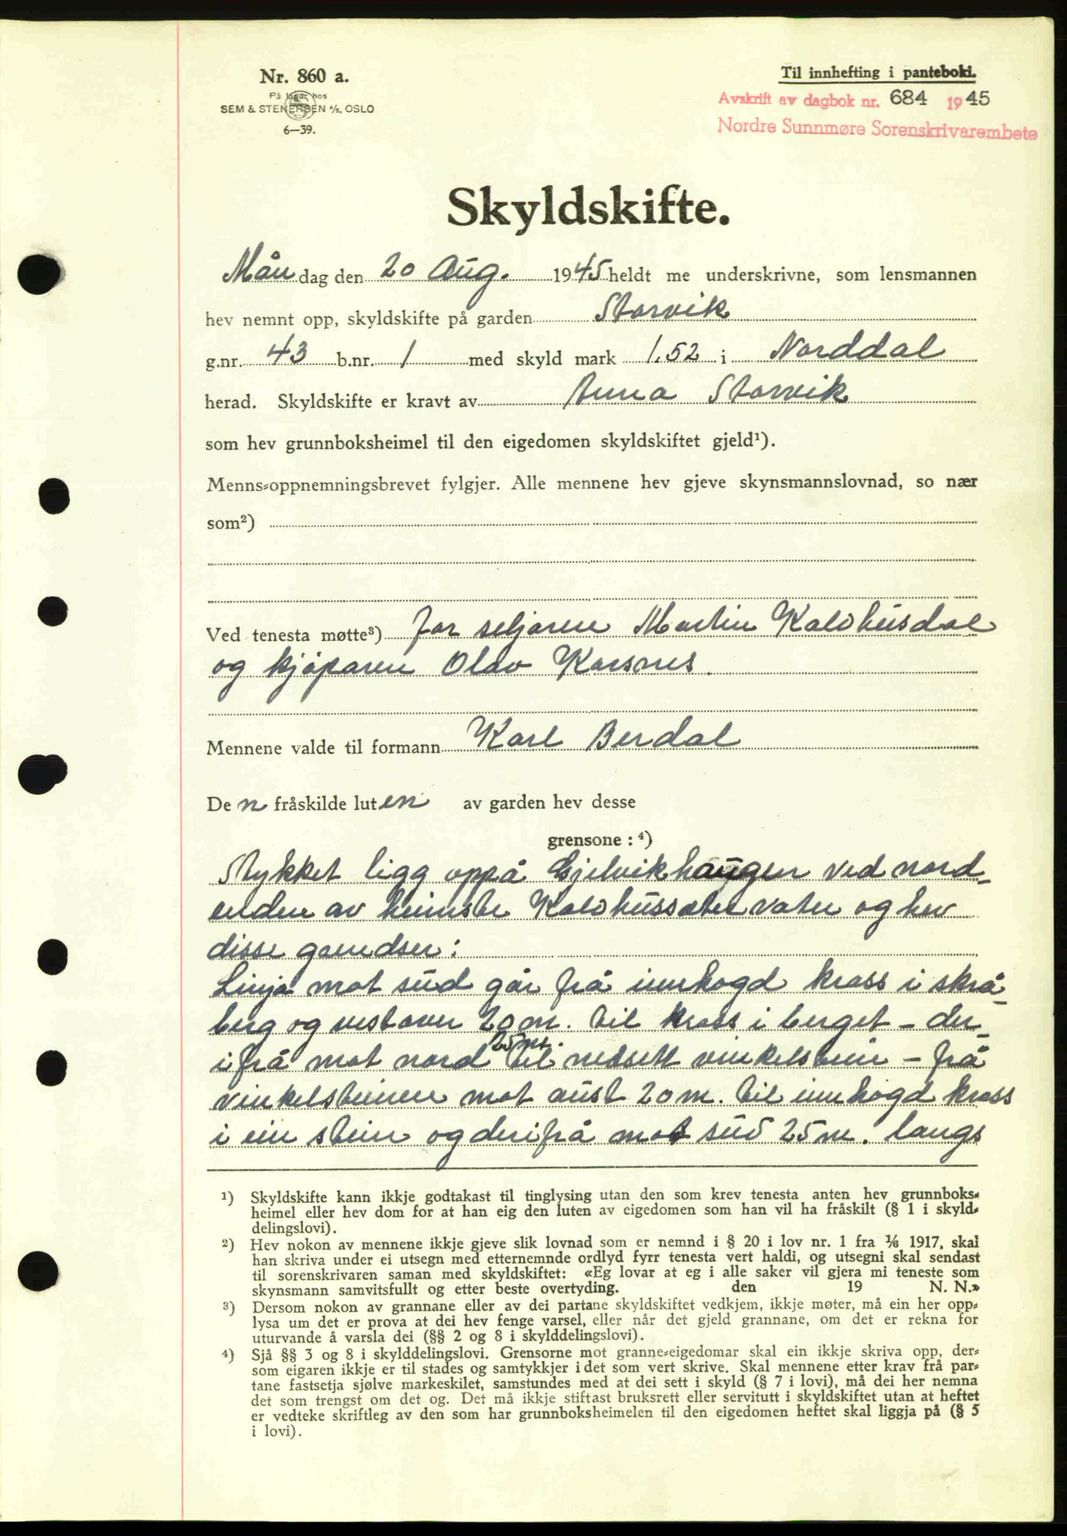 Nr. 860 a.
På lager hos
SEM & STENERSEN A/S, OSLO
6—39.
Til innhefting i panteboki.
Avskrift av dagbok nr. 684 1945
Nordre Sunnmøre Sorenskrivarembete
Skyldskifte.
Måndag den 20 Aug. 1945 heldt me underskrivne, som lensmannen
hev nemnt opp, skyldskifte på garden Storvik
g.nr. 43 b.nr. 1 med skyld mark 1.52 i Norddal
herad. Skyldskifte er kravt av Anna Storvik
som hev grunnboksheimel til den eigedomen skyldskiftet gjeld¹).
Menns-oppnemningsbrevet fylgjer. Alle mennene hev gjeve skynsmannslovnad, so nær
som²)
Ved tenesta møtte³) for seljaren Martin Kaldhusdal
og kjøparen Olav Korsnes.
Mennene valde til formann Karl Berdal
Den fråskilde luten av garden hev desse
grensone : ⁴)
Stykket ligg oppå Gjelvikhaugen ved nord-
enden av heimste Kaldhussætervatn og hev
disse grendser:
Linja mot süd går frå innhogd kross i skrå-
berg og vestover 20 m. til kross i berget - der-
ifrå mot nord 25 mt. til nedsett vinkelstein - frå
vinkelsteinen mot aust 20 m. til innhogd kross
i ein stein og derifrå mot süd 25 m. langs
¹) Skyldskifte kann ikkje godtakast til tinglysing utan den som krev tenesta anten hev grunnboks-
heimel eller hev dom for at han eig den luten av eigedomen som han vil ha fråskilt (§ 1 i skyld-
delingslovi).
²) Hev nokon av mennene ikkje gjeve slik lovnad som er nemnd i § 20 i lov nr. 1 fra 1/6 1917, skal
han skriva under ei utsegn med etternemnde ordlyd fyrr tenesta vert haldi, og utsegni skal sendast
til sorenskrivaren saman med skyldskiftet: «Eg lovar at eg i alle saker vil gjera mi teneste som
skynsmann samvitsfullt og etter beste overtyding. den 19 N. N.»
³) Dersom nokon av grannane eller av dei partane skyldskiftet vedkjem, ikkje møter, må ein her opp-
lysa um det er prova at dei hev fenge varsel, eller når det gjeld grannane, om det er rekna for
uturvande å varsla dei (§§ 2 og 8 i skylddelingslovi).
⁴) Sjå §§ 3 og 8 i skylddelingslovi. Grensorne mot granne-eigedomar skal ein ikkje skriva opp, der-
som eigaren ikkje er til stades og samtykkjer i det som vert skrive. Skal mennene etter krav frå par-
tane fastsetja sjølve markeskilet, samstundes med at dei sett i skyld (§ 7 i lovi), må dei her nemna
det som trengst om det og. Det må ikkje stiftast bruksrett eller servitutt i skyldskiftet utan at heftet
er vedteke skriftleg av den som har grunnboksheimelen til den eigedomen heftet skal liggja på (§ 5
i lovi).